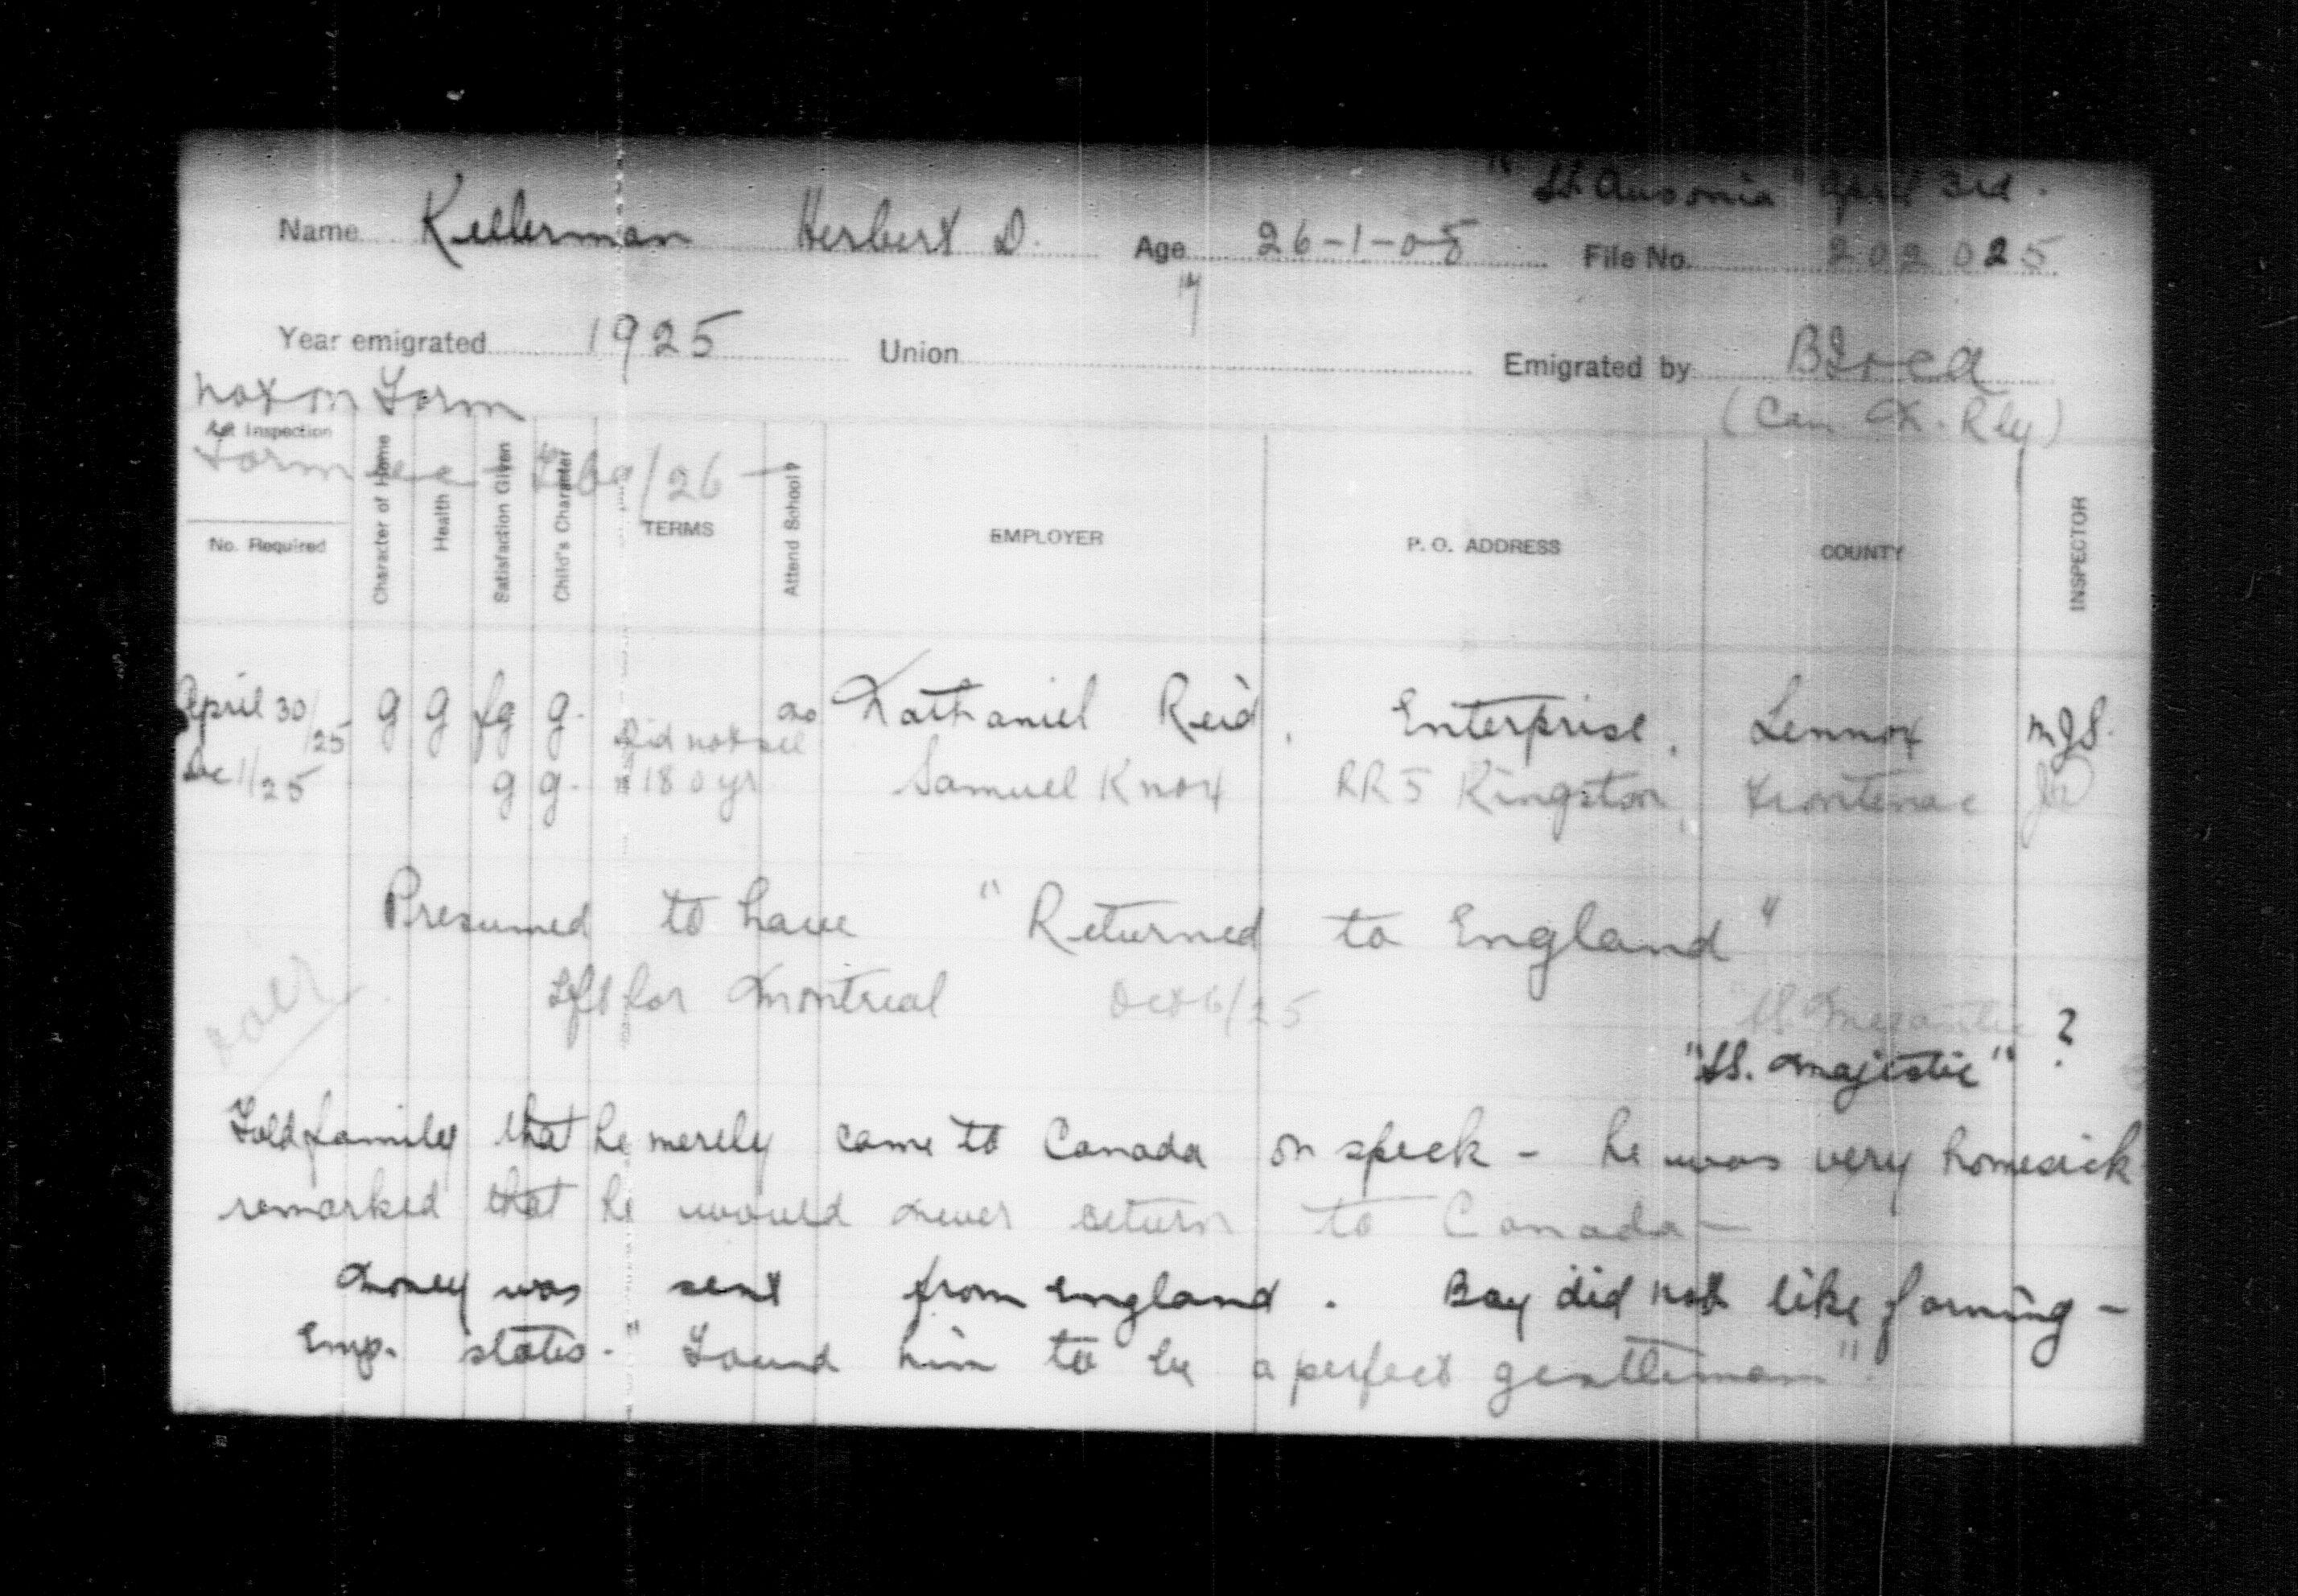 "SS. Ausonia" April 3rd.
Name Kellerman Herbert D. Age 26-1-08 File No. 202025
17
Year emigrated 1925 Union Emigrated by B I o e a
(Can. N. Rly)
not on Farm
Inspection
Farm Feb 9/26 —
No. Required Character of Home Health Satisfaction Given Child's Character TERMS Attend School? EMPLOYER P. O. ADDRESS COUNTY INSPECTOR
April 30/25 g g fg g. Did not see no Nathaniel Reid, Enterprise, Lennox MJS.
Dec 1/25 g g. $180 yr Samuel Knox RR5 Kingston, Frontenac
Presumed to have "Returned to England"
Left for Montreal Oct 6/25
"SS. Megantic" ?
"SS. Majestic"
Told family that he merely came to Canada on speck - he was very homesick
remarked that he would never return to Canada —
Money was sent from England. Boy did not like farming -
Emp. states - "Found him to be a perfect gentleman".